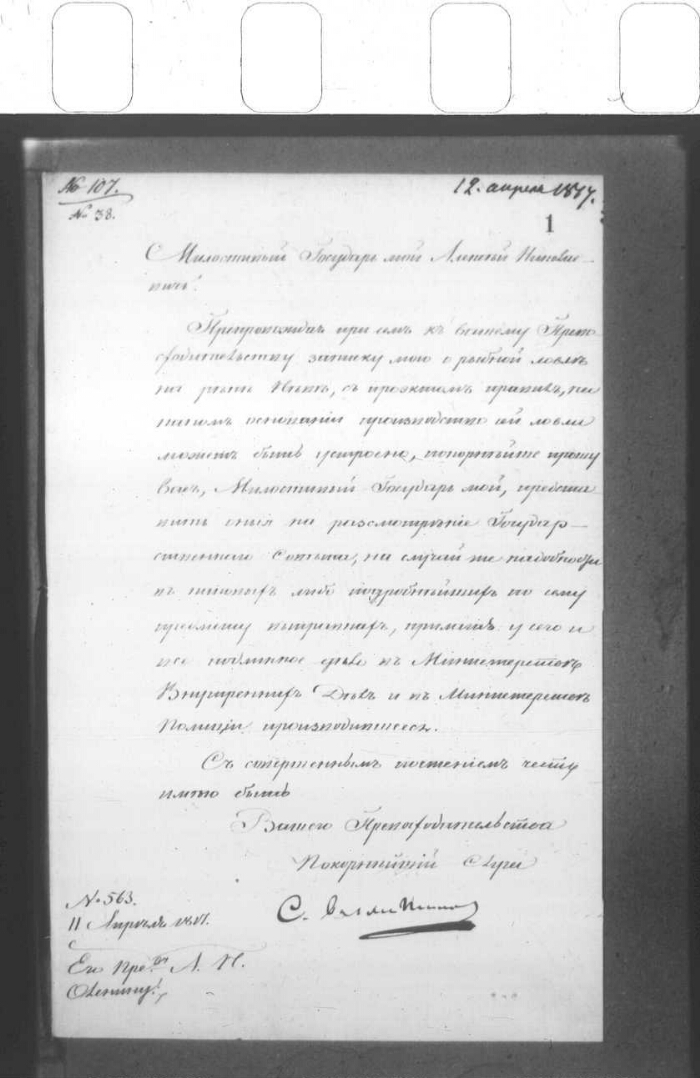 № 107.
№ 38.
12. апреля 1817.
1
Милостивый Государь мой Алексей Николае-
вичь!
Препровождая при семъ къ вашему Прево
сходительству записку мою о рыбной ловлѣ
на рѣкѣ Невѣ, съ проэктомъ правилъ, на
какомъ основаніи производство сей ловли
можетъ быть устроено, покорнѣйше прошу
васъ, Милостивый Государь мой, предста
вить оныя на разсмотрѣніе Государ-
ственнаго Совѣта, на случай же надобности
въ какихъ либо подробнѣйшихъ по сему
предмету свѣденіяхъ, прилагаю у сего и
все подлинное дѣло въ Министерствѣ
Внутреннихъ Дѣлъ и въ Министерствѣ
Полиціи производившееся.
Съ совершеннымъ почтеніемъ честь
имѣю быть
Вашего Превосходительства
Покорнѣйшій слуга
С.
№ 563.
11 Апрѣля 1817.
Его Пре-ву А. Н.
Оленину.